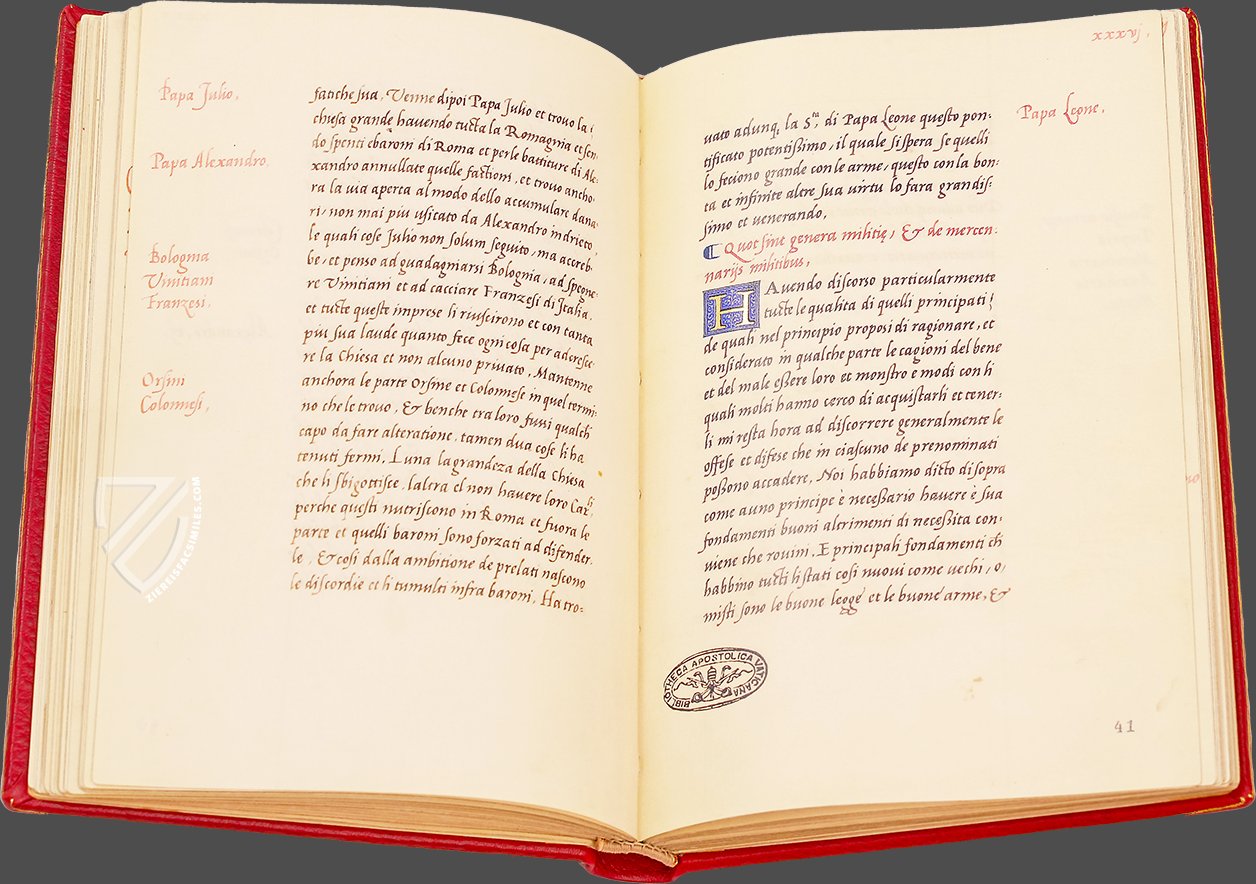 Papa Julio.
Papa Alexandro.
Bolognia
Vinitiani
Franzesi.
Orsini
Colonnesi.
fatiche sua. Venne dipoi Papa Julio et trovo la
chiesa grande havendo tucta la Romagnia et sen
do spenti ebaroni di Roma et per le battiture di Ale
xandro annullate quelle factioni, et trovo ancho
ra la via aperta al modo dello accumulare dana
ri, non mai piu usitato da Alexandro indrieto,
le quali cose Julio non solum seguito, ma accreb
be, et penso ad guadagniarsi Bologna, ad spegne
re Vinitiani et ad cacciare Franzesi di Italia,
et tucte queste imprese li riuscirono et con tanta
piu sua laude quanto fece ogni cosa per adcresce
re la Chiesa et non alcuno privato. Mantenne
anchora le parte Orsine et Colonnese in quel termi
no che le trovo, & benche tra loro fussi qualch
capo da fare alteratione, tamen dua cose li ha
tenuti fermi, Luna la grandeza della Chiesa
che li sbigottisce, laltra el non havere loro Car.li
perche questi nutriscono in Roma et fuora le
parte et quelli baroni sono forzati ad difender
le, & cosi dalla ambitione de prelati nascono
le discordie et li tumulti infra baroni. Ha tro-
xxxvj.
Papa Leone.
vato adunq, la S.ta di Papa Leone questo pon-
tificato potentissimo, il quale si spera se quelli
lo feciono grande con le arme, questo con la bon-
ta et infinite altre sua virtu lo fara grandis-
simo et venerando.
¶ Quot sint genera militię, & de mercen-
narijs militibus.
HAvendo discorso particularmente
tucte le qualita di quelli principati
de quali nel principio proposi di ragionare, et
considerato in qualche parte le cagioni del bene
et del male essere loro et monstro e modi con li
quali molti hanno cerco di acquistarli et tener-
li mi resta hora ad discorrere generalmente le
offese et difese che in ciascuno de prenominati
possono accadere. Noi habbiamo dicto di sopra
come a uno principe è necessario havere è sua
fondamenti buoni altrimenti di necessita con-
viene che rovini. E principali fondamenti ch
habbino tucti li stati cosi nuovi come vechi, o,
misti sono le buone legge et le buone arme, &
BIBLIOTHECA APOSTOLICA VATICANA
41
ZIEREISFACSIMILES.COM